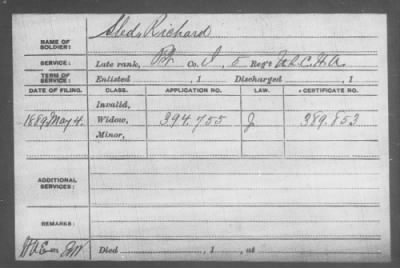 NAME OF SOLDIER: Sleds Richard
SERVICE: Late rank, Pvt Co. I, 5 Reg't U.S.C.H.A.
TERM OF SERVICE: Enlisted , 1 Discharged , 1
DATE OF FILING. CLASS. APPLICATION NO. LAW. CERTIFICATE NO.
Invalid,
1889 May 4. Widow, 394.755 J 389.853
Minor,
ADDITIONAL SERVICES:
REMARKS:
Died , 1 , at